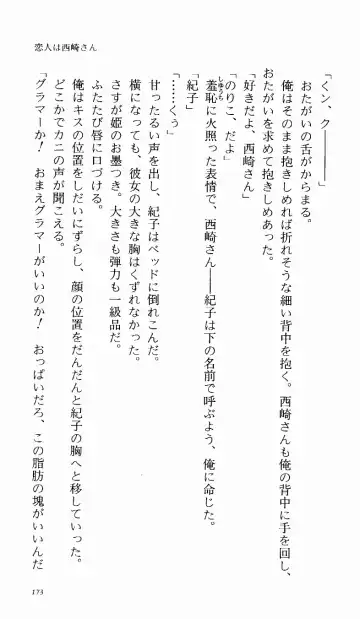 恋人は西崎さん
「くン、ク――――」
おたがいの舌がからまる。
俺はそのまま抱きしめれば折れそうな細い背中を抱く。西崎さんも俺の背中に手を回し、
おたがいを求めて抱きしめあった。
「好きだよ、西崎さん」
「のりこ、だよ」
羞恥に火照った表情で、西崎さん――紀子は下の名前で呼ぶよう、俺に命じた。
しゅうち
「紀子」
「……くぅ」
甘ったるい声を出し、紀子はベッドに倒れこんだ。
横になっても、彼女の大きな胸はくずれなかった。
さすが姫のお墨つき。大きさも弾力も一級品だ。
ふたたび唇に口づける。
俺はキスの位置をしだいにずらし、顔の位置をだんだんと紀子の胸へと移していった。
どこかでカニの声が聞こえる。
「グラマーか! おまえグラマーがいいのか! おっぱいだろ、この脂肪の塊がいいんだ
173